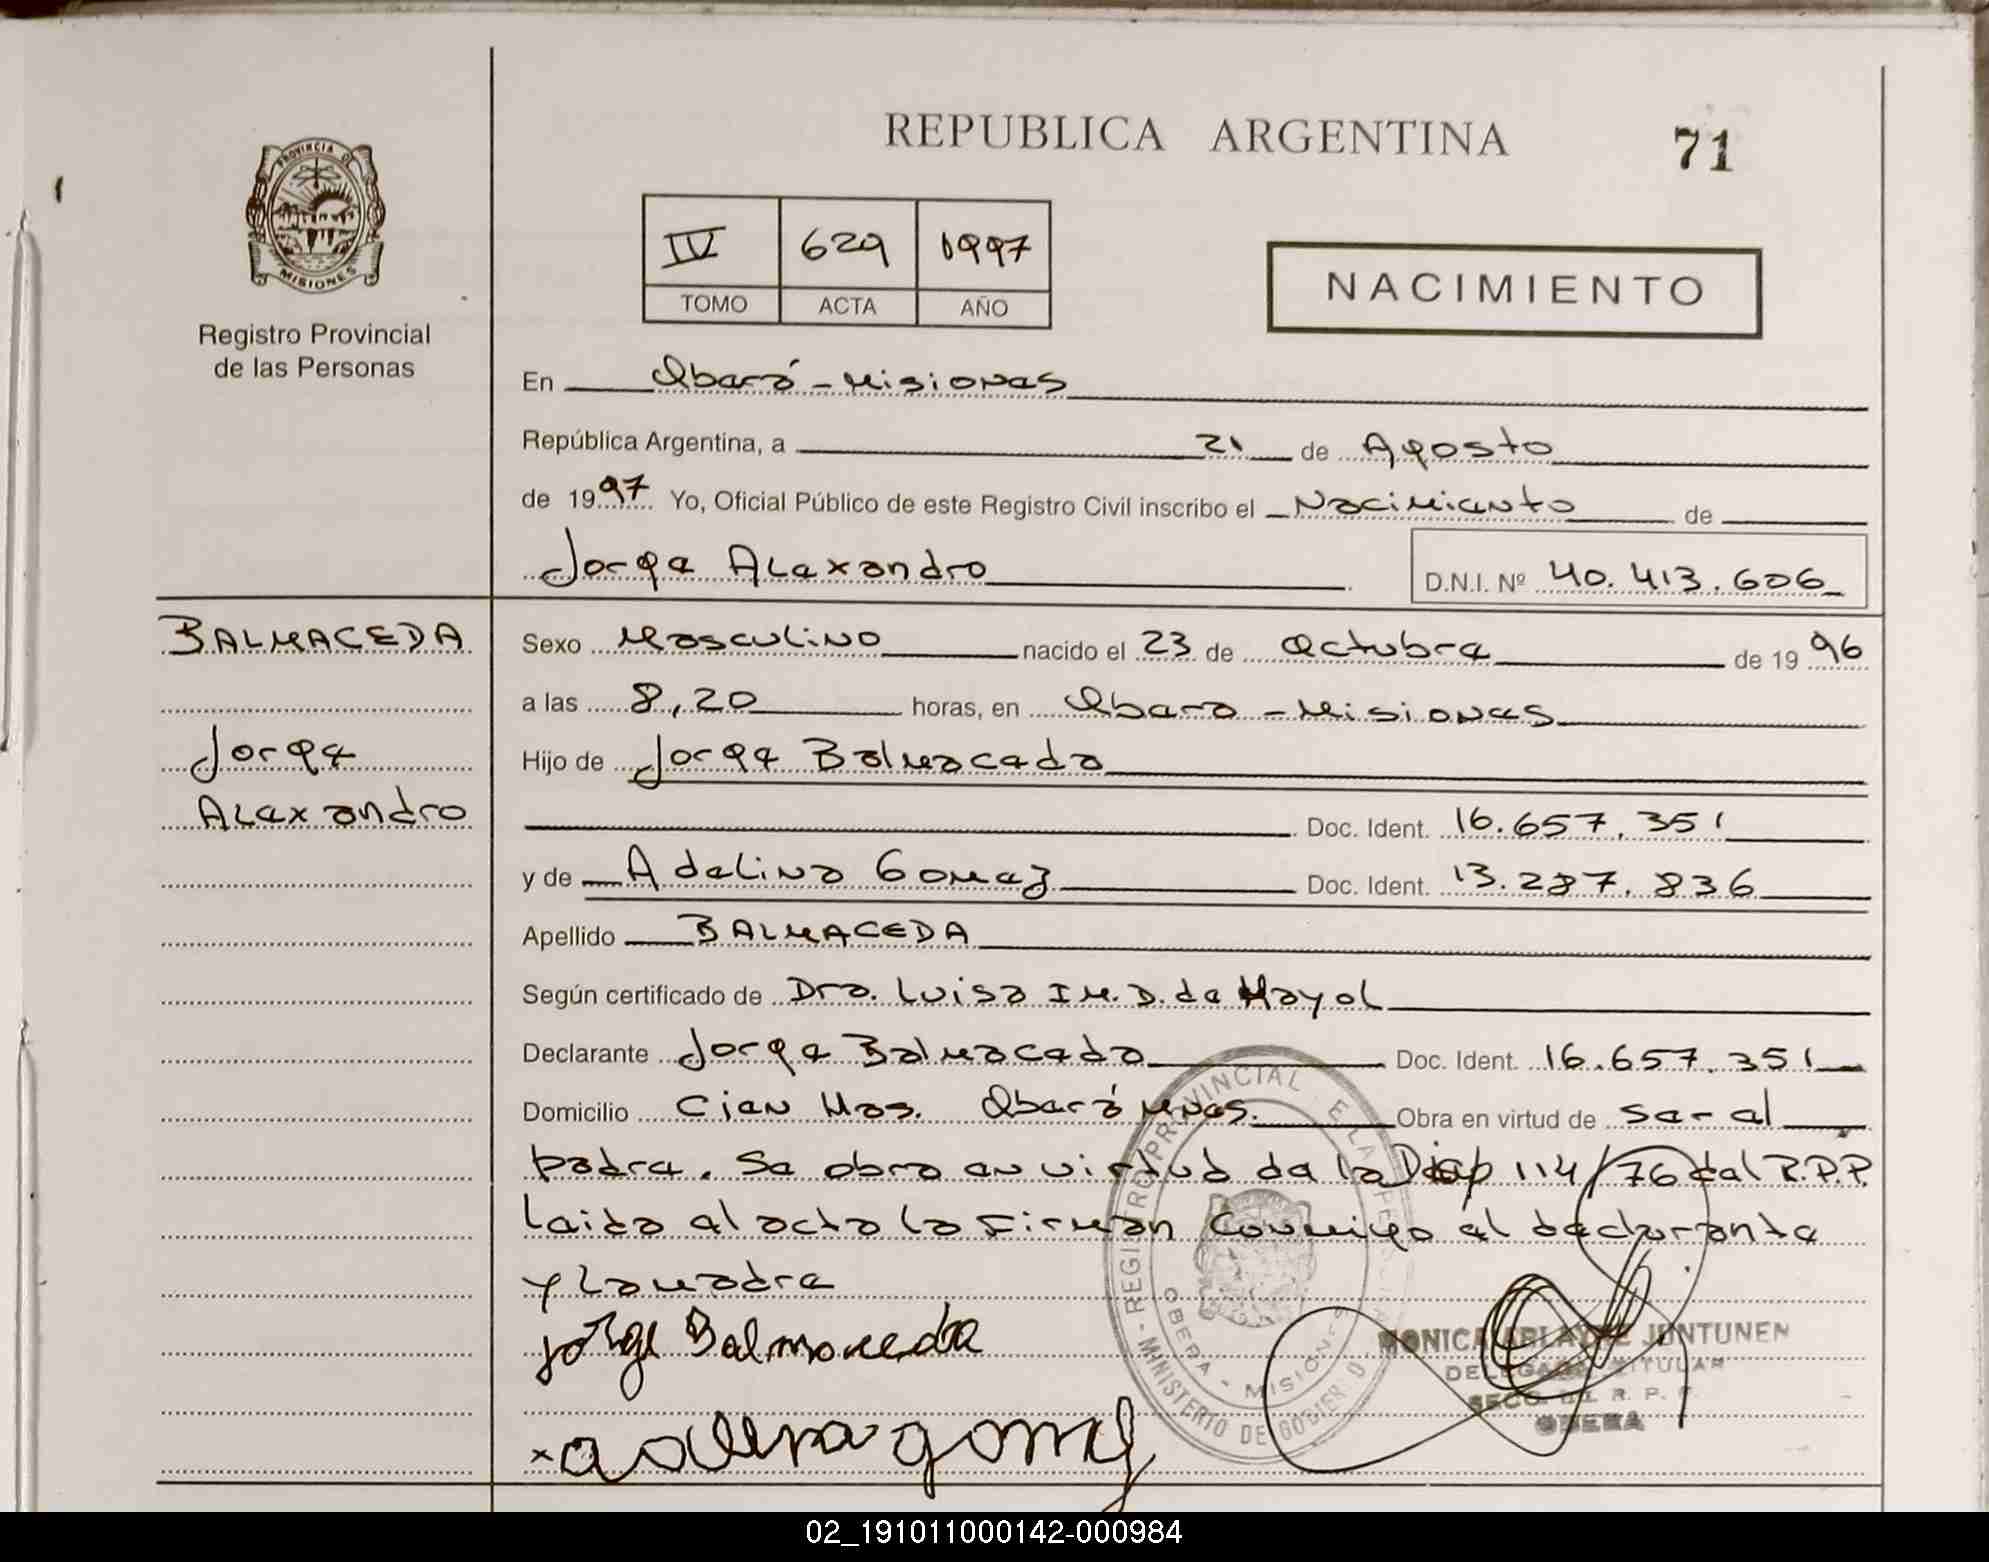 REPUBLICA ARGENTINA
71
PROVINCIA D
MISIONES
Registro Provincial
de las Personas
IV 629 1997
TOMO ACTA AÑO
NACIMIENTO
En Oberá - Misiones
República Argentina, a 21 de Agosto
de 1997 Yo, Oficial Público de este Registro Civil inscribo el Nacimiento de
Jorge Alexandro
D.N.I. Nº 40.413.606
BALMACEDA
Jorge
Alexandro
Sexo Masculino nacido el 23 de Octubre de 1996
a las 8,20 horas, en Obera - Misiones
Hijo de Jorge Balmaceda
Doc. Ident. 16.657.351
y de Adelina Gomez Doc. Ident. 13.287.836
Apellido BALMACEDA
Según certificado de Dra. Luisa I.M.D. de Mayol
Declarante Jorge Balmaceda Doc. Ident. 16.657.351
Domicilio Cien Has. Oberá Mnes. Obra en virtud de ser el
padre. Se obra en virtud de la Disp 114/76 del R.P.P.
Leida el acta la firman conmigo el declarante
y la madre
Jorge Balmaceda
x adelina gomez
REGISTRO PROVINCIAL E LA PE
OBERA - MISIONES
MINISTERIO DE GOBIERNO
MONICA JUNTUNEN
DELEGADA TITULAR
SECC. R. P.
OBERA
02_191011000142-000984